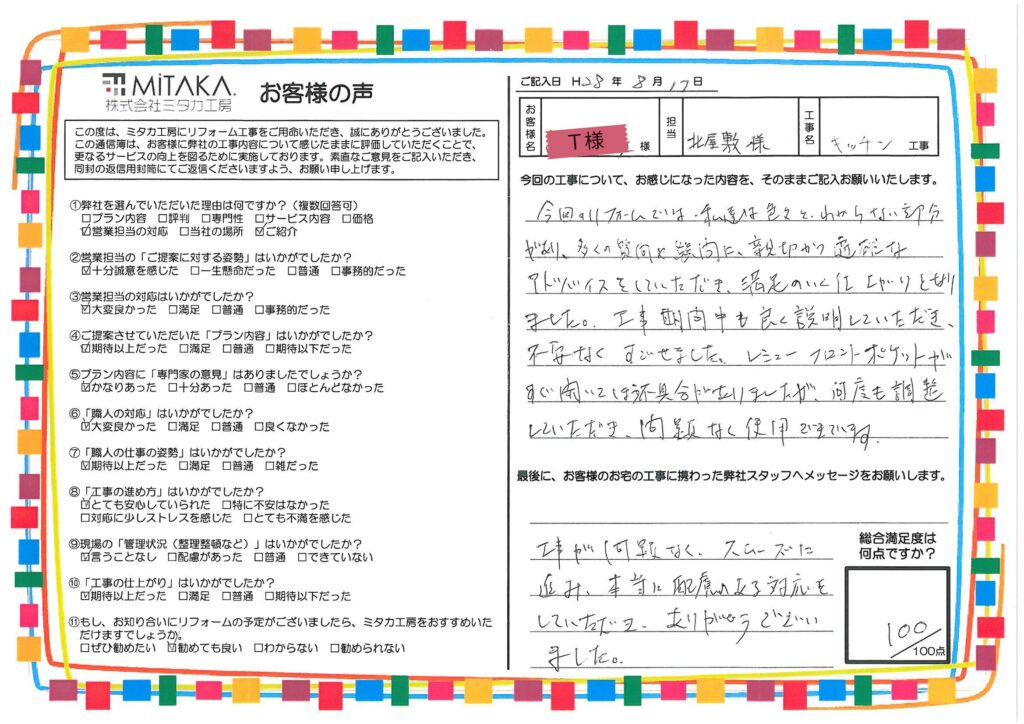 MiTAKA.
株式会社ミタカ工房
お客様の声
この度は、ミタカ工房にリフォーム工事をご用命いただき、誠にありがとうございました。
この通信簿は、お客様に弊社の工事内容について感じたままに評価していただくことで、
更なるサービスの向上を図るために実施しております。素直なご意見をご記入いただき、
同封の返信用封筒にてご返信くださいますよう、お願い申し上げます。
①弊社を選んでいただいた理由は何ですか？（複数回答可）
□プラン内容 □評判 □専門性 □サービス内容 □価格
☑営業担当の対応 □当社の場所 ☑ご紹介
②営業担当の「ご提案に対する姿勢」はいかがでしたか？
☑十分誠意を感じた □一生懸命だった □普通 □事務的だった
③営業担当の対応はいかがでしたか？
☑大変良かった □満足 □普通 □事務的だった
④ご提案させていただいた「プラン内容」はいかがでしたか？
☑期待以上だった □満足 □普通 □期待以下だった
⑤プラン内容に「専門家の意見」はありましたでしょうか？
☑かなりあった □十分あった □普通 □ほとんどなかった
⑥「職人の対応」はいかがでしたか？
☑大変良かった □満足 □普通 □良くなかった
⑦「職人の仕事の姿勢」はいかがでしたか？
☑期待以上だった □満足 □普通 □雑だった
⑧「工事の進め方」はいかがでしたか？
☑とても安心していられた □特に不安はなかった
□対応に少しストレスを感じた □とても不満を感じた
⑨現場の「管理状況（整理整頓など）」はいかがでしたか？
☑言うことなし □配慮があった □普通 □できていない
⑩「工事の仕上がり」はいかがでしたか？
☑期待以上だった □満足 □普通 □期待以下だった
⑪もし、お知り合いにリフォームの予定がございましたら、ミタカ工房をおすすめいた
だけますでしょうか。
□ぜひ勧めたい ☑勧めても良い □わからない □勧められない
ご記入日 H28年 8月 17日
お客様名 T様 様 担当 北屋敷 様 工事名 キッチン 工事
今回の工事について、お感じになった内容を、そのままご記入お願いいたします。
今回のリフォームでは、私達は色々と、わからない部分
があり、多くの質問や疑問に、親切かつ適切な
アドバイスをしていただき、満足のいく仕上がりとなり
ました。工事期間中も良く説明していただき、
不安なくすごせました。レミューフロントポケットが
すぐ開いてしまう不具合がありましたが、何度も調整
していただき、問題なく使用できています。
最後に、お客様のお宅の工事に携わった弊社スタッフへメッセージをお願いします。
工事が問題なく、スムーズに
進み、本当に配慮のある対応を
していただき、ありがとうござい
ました。
総合満足度は
何点ですか？
100
100点